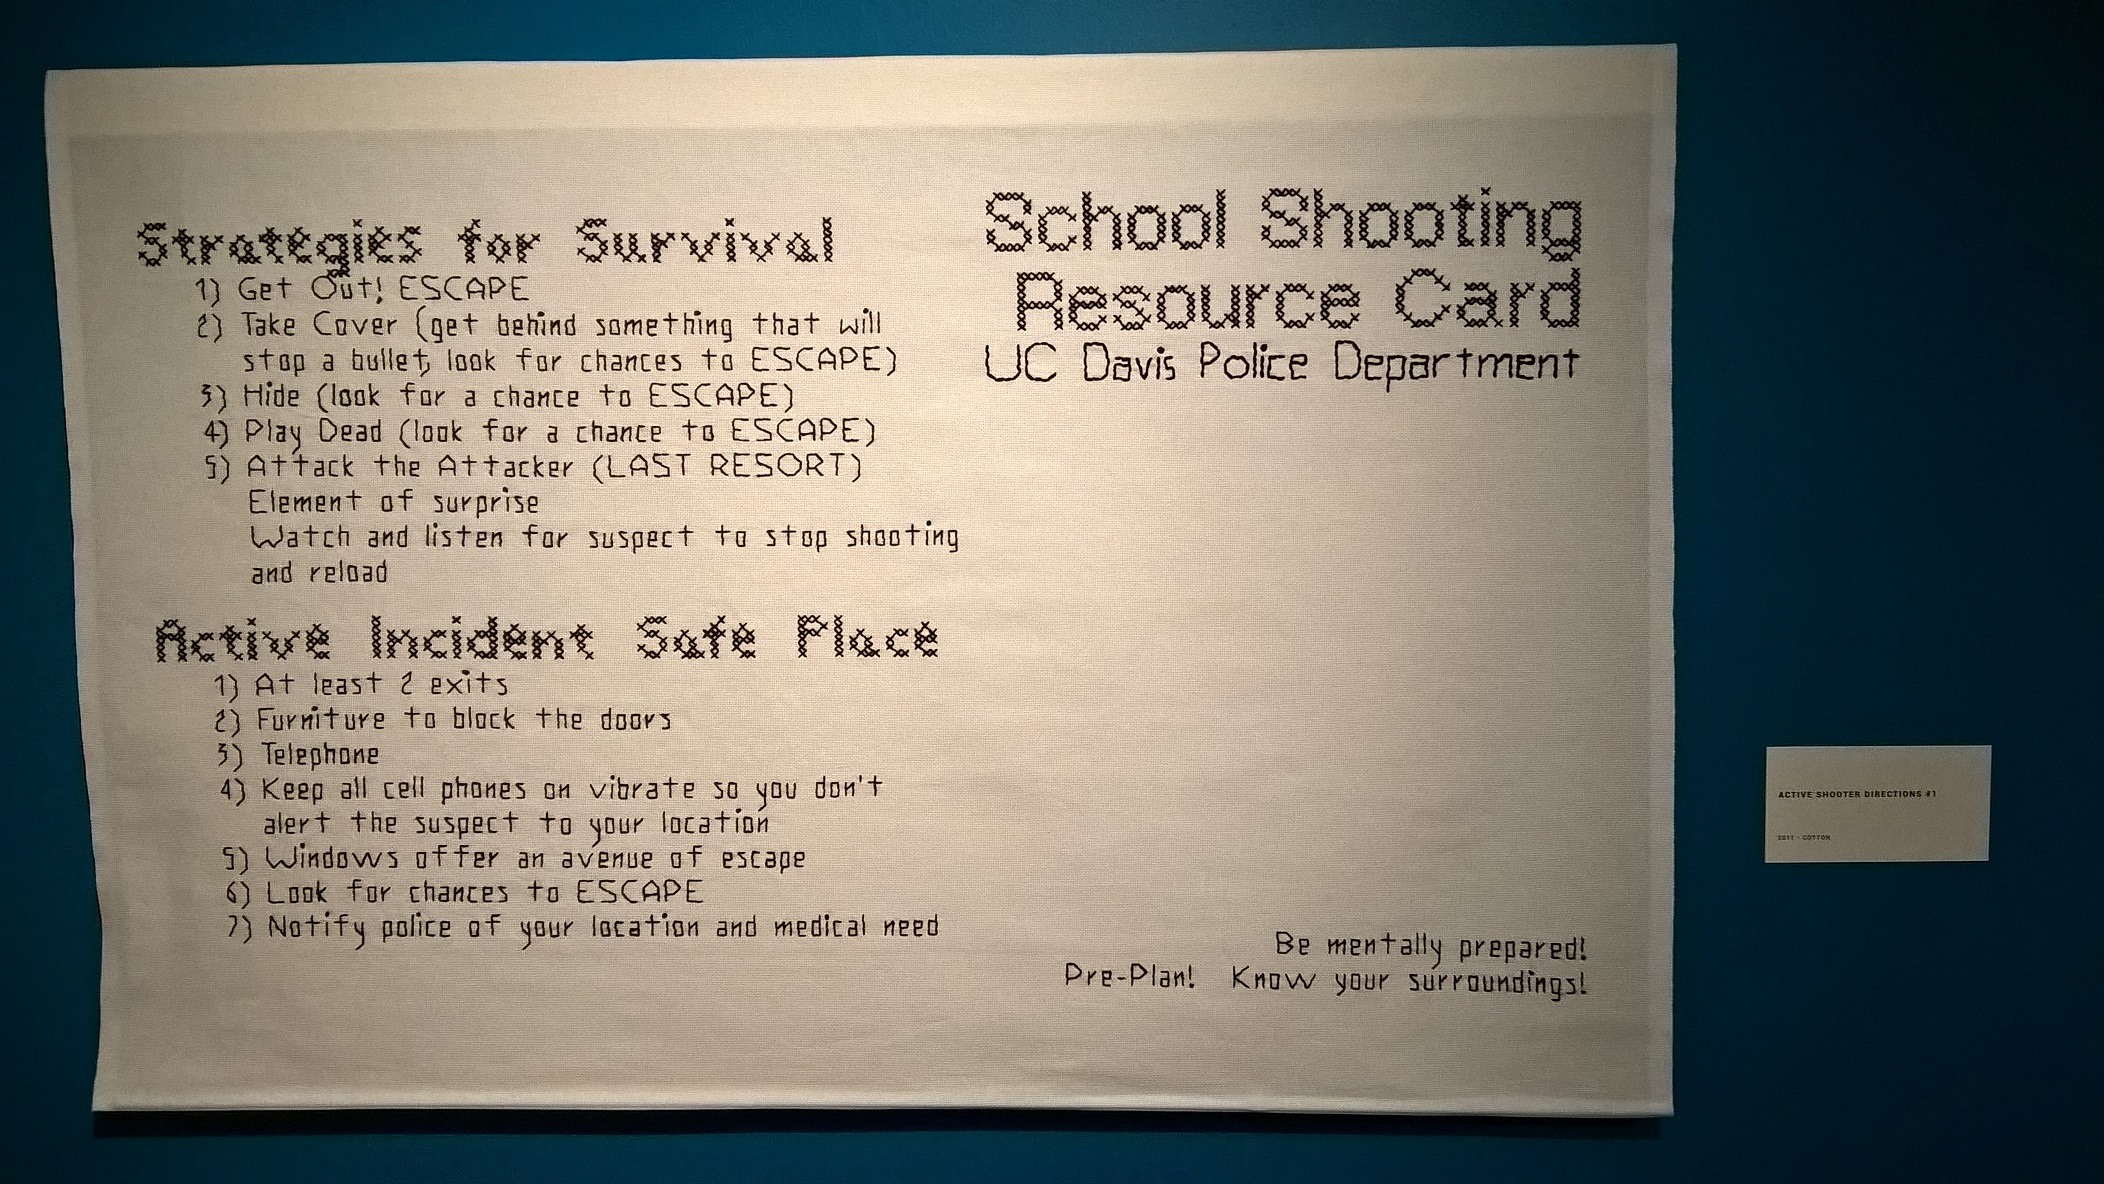 Strategies for Survival
1) Get Out! ESCAPE
2) Take Cover (get behind something that will
stop a bullet, look for chances to ESCAPE)
3) Hide (look for a chance to ESCAPE)
4) Play Dead (look for a chance to ESCAPE)
5) Attack the Attacker (LAST RESORT)
Element of surprise
Watch and listen for suspect to stop shooting
and reload
Active Incident Safe Place
1) At least 2 exits
2) Furniture to block the doors
3) Telephone
4) Keep all cell phones on vibrate so you don't
alert the suspect to your location
5) Windows offer an avenue of escape
6) Look for chances to ESCAPE
7) Notify police of your location and medical need
School Shooting
Resource Card
UC Davis Police Department
Be mentally prepared!
Pre-Plan! Know your surroundings!
ACTIVE SHOOTER DIRECTIONS #1
COTTON